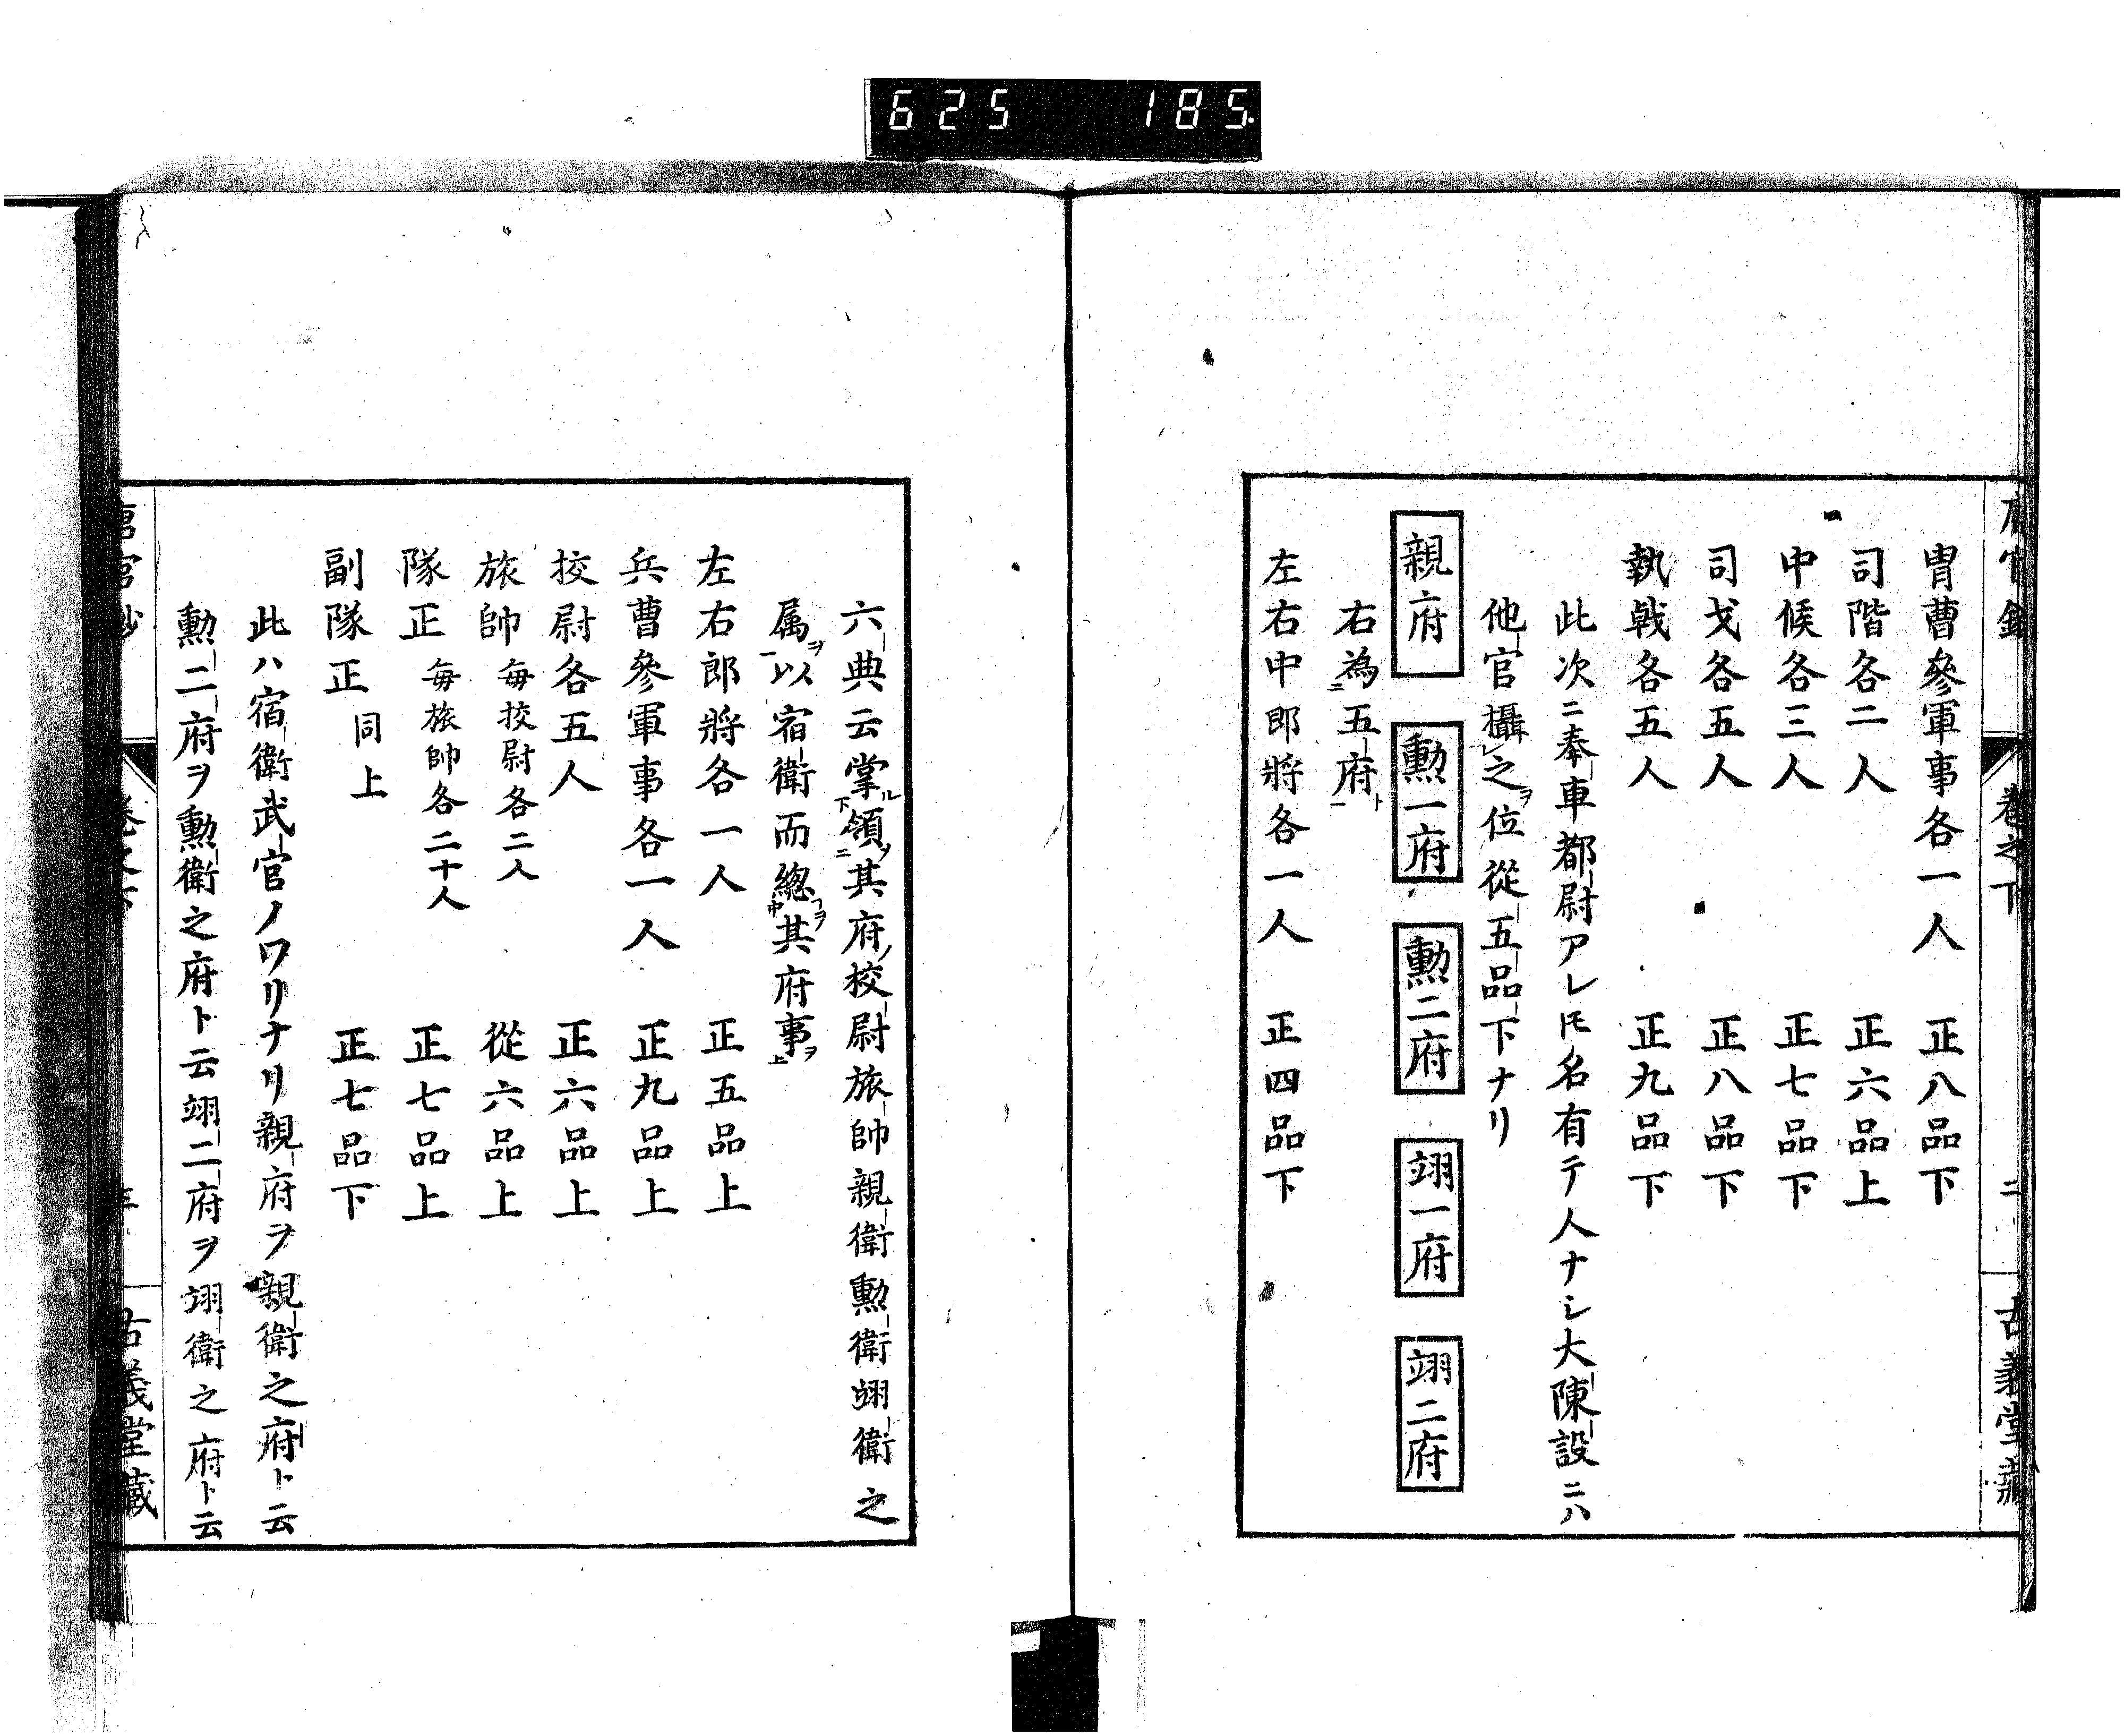 625 185
冑曹參軍事各一人 正八品下
司階各二人 正六品上
中候各三人 正七品下
司戈各五人 正八品下
執戟各五人 正九品下
此次ニ奉車都尉アレ𪜈名有テ人ナシ大陳設ニハ
他官攝之ヲ位從五品下ナリ
親府 勲一府 勲二府 翊一府 翊二府
右為五府ト
左右中郎将各一人 正四品下
卷之下
古義堂藏
六典云掌ル領ヿ其府ノ校尉旅帥親衛勲衛翊衛之
属ヲ以宿衛而總ヿヲ其府事ヲ
左右郎將各一人 正五品上
兵曹參軍事各一人 正九品上
挍尉各五人 正六品上
旅帥 毎挍尉各二人 從六品上
隊正 毎旅帥各二十人 正七品上
副隊正 同上 正七品下
此ハ宿衛武官ノワリナリ親府ヲ親衛之府ト云
勲二府ヲ勲衛之府ト云翊二府ヲ翊衛之府ト云
唐官鈔
卷之下
古義堂藏